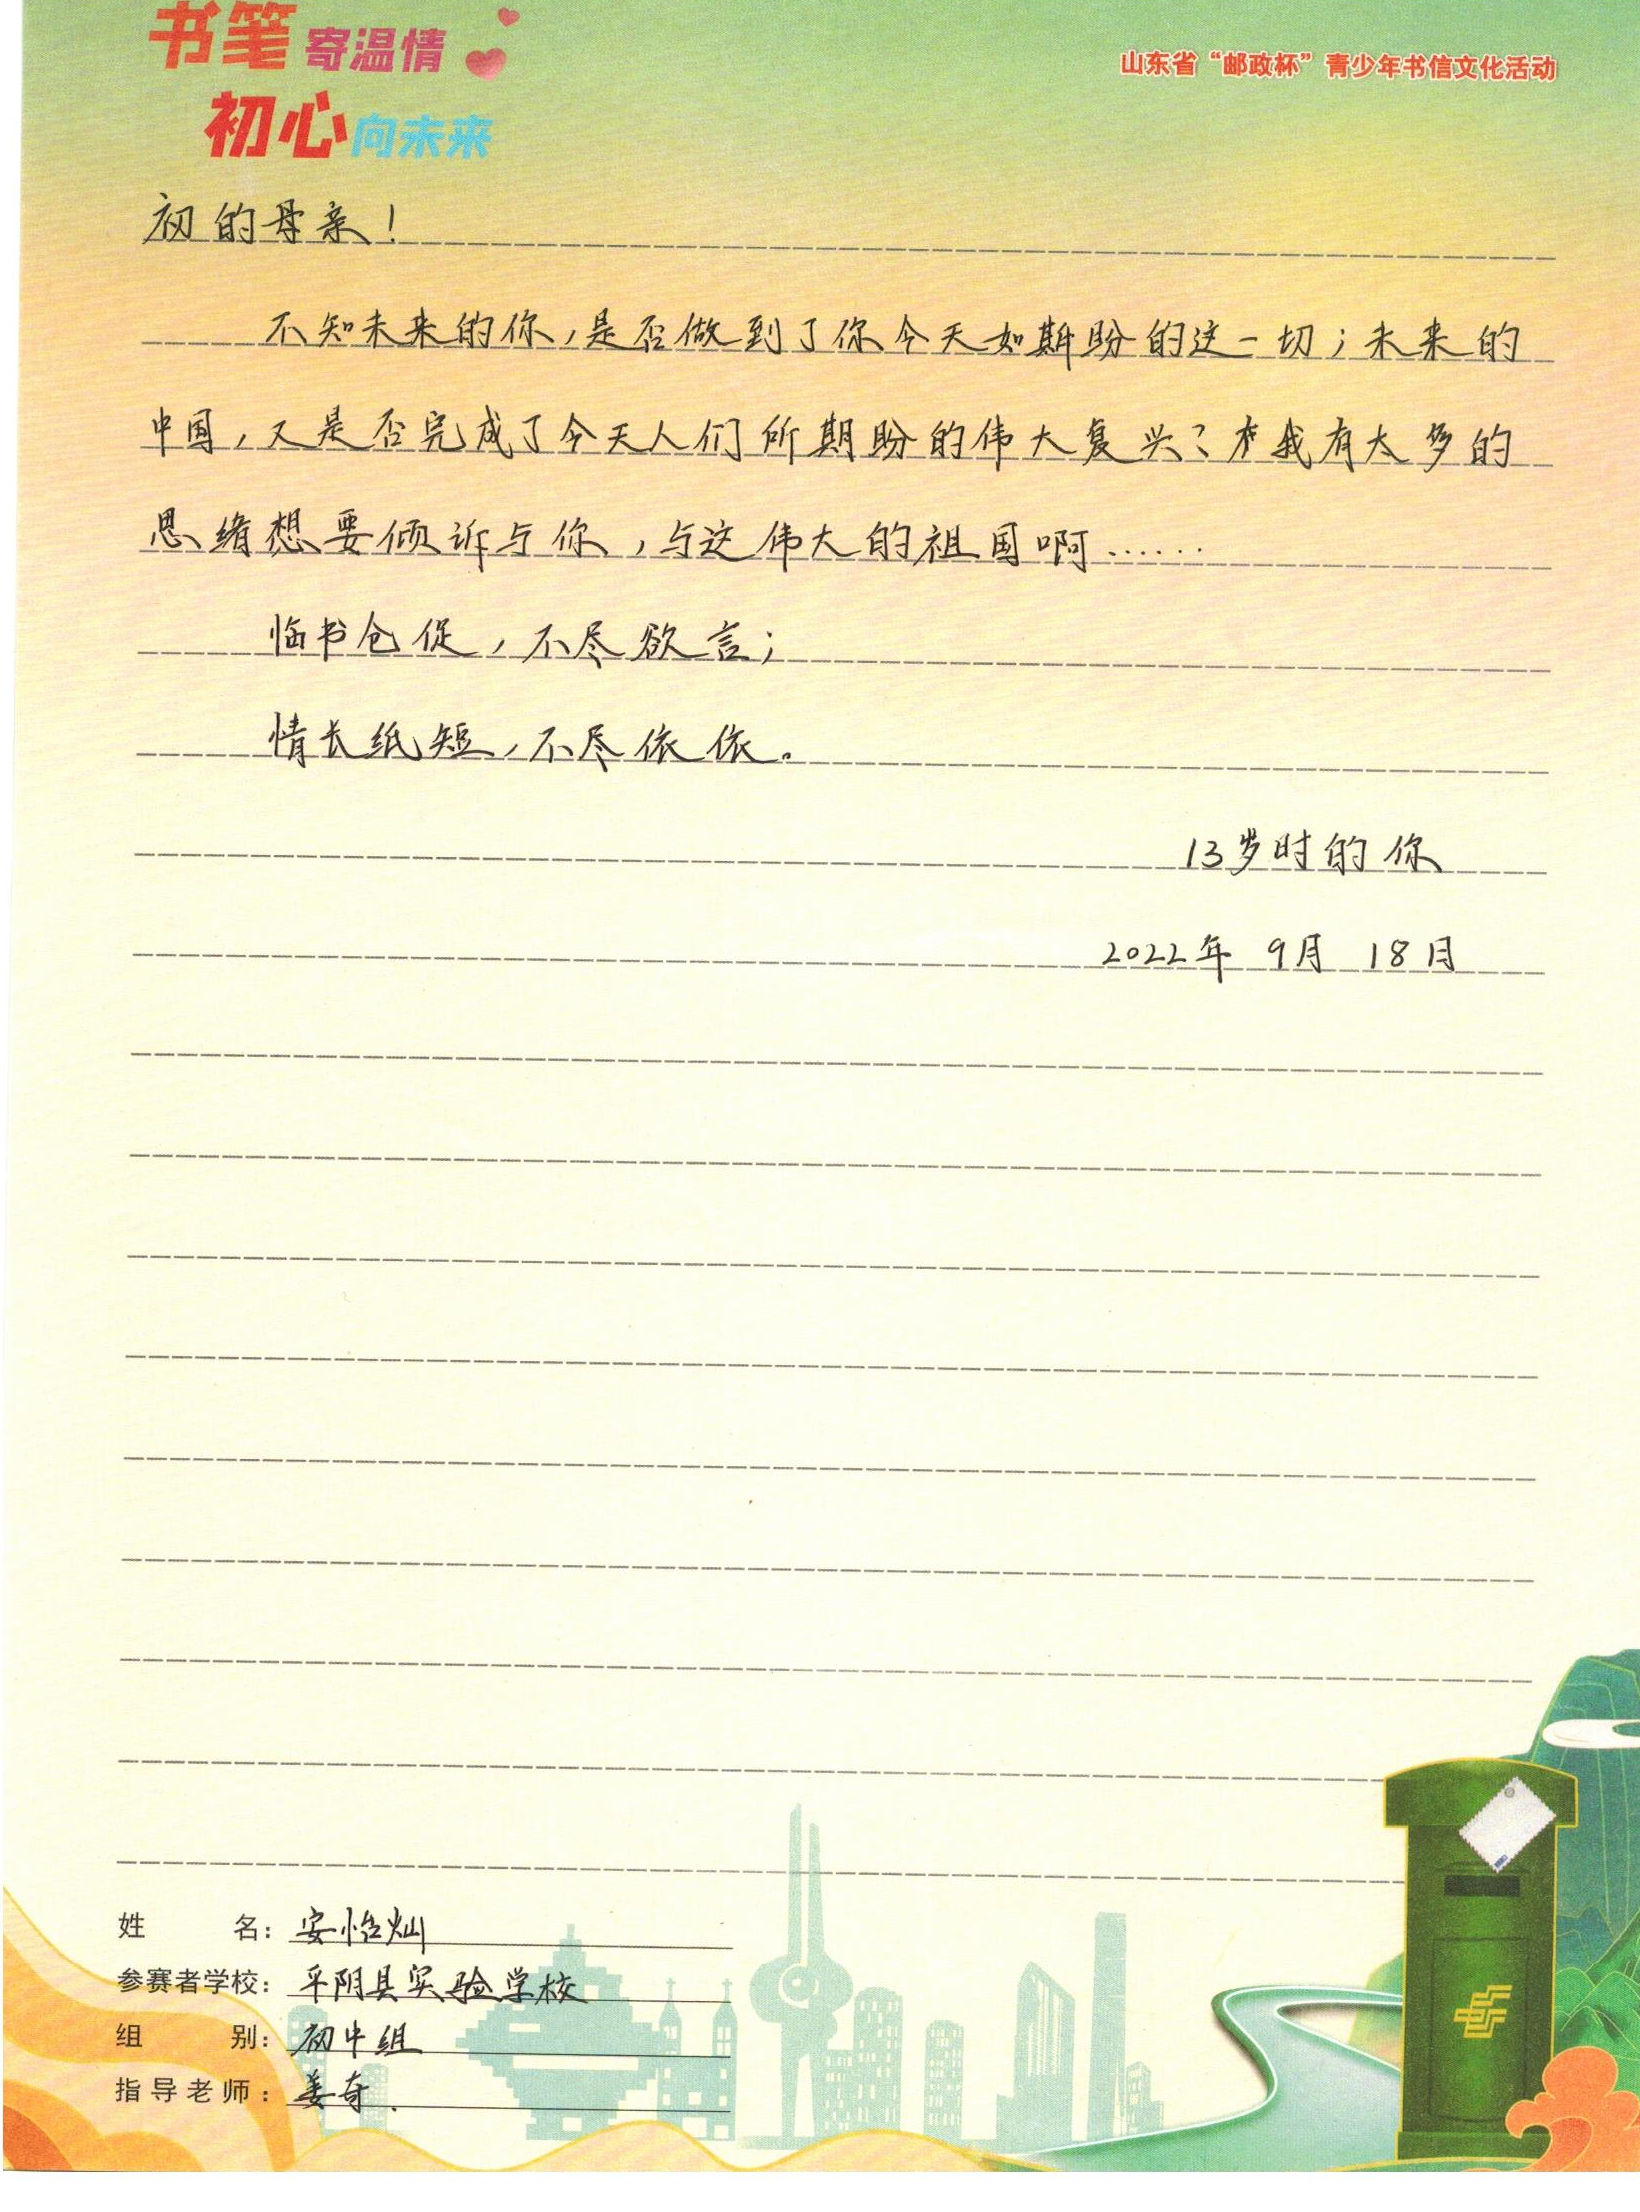 书笔寄温情
初心向未来
山东省“邮政杯”青少年书信文化活动
初的母亲！
不知未来的你，是否做到了你今天如斯盼的这一切；未来的
中国，又是否完成了今天人们所期盼的伟大复兴？我有太多的
思绪想要倾诉与你，与这伟大的祖国啊……
临书仓促，不尽欲言；
情长纸短，不尽依依。
13岁时的你
2022年 9月 18日
姓名：安怡灿
参赛者学校：平阴县实验学校
组别：初中组
指导老师：姜奇.